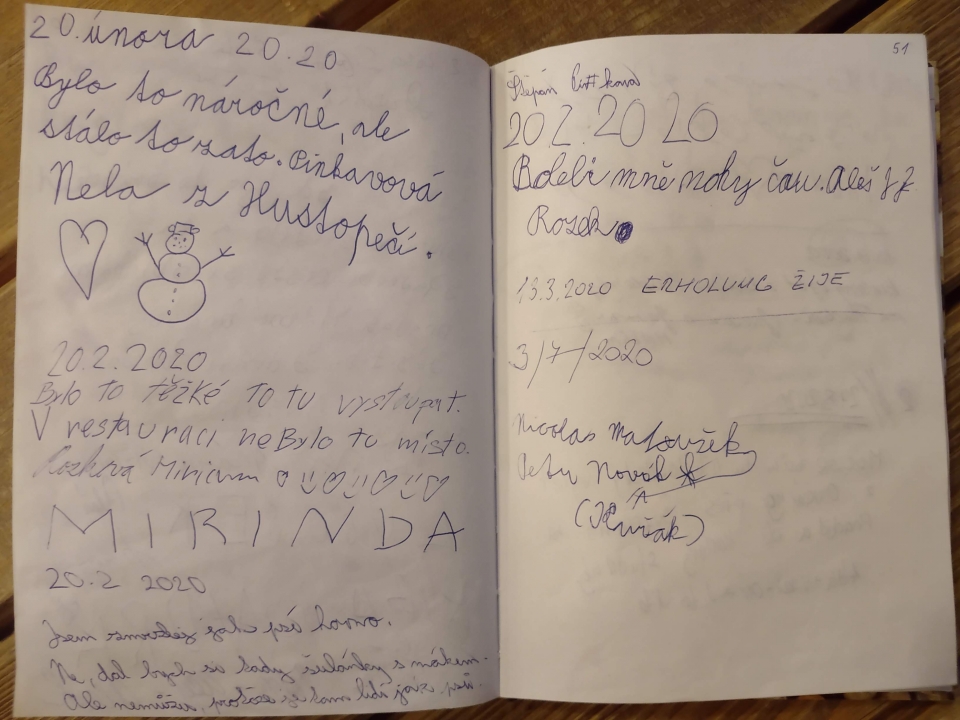 20. února 20.20
Bylo to náročné, ale
stálo to zato. Pinkavová
Nela z Hustopečí.
20.2.2020
Bylo to těžké to tu vystoupat.
V restauraci neBylo tu místo.
Miriam
MIRINDA
20.2 2020
Jsem zmrzlej jak psí homo.
Ne, dal bych si tady šulánky s mákem.
Ale nemůžu, protože je tam lidí jak psů.
51
Štěpán
20 2.2020
Bolebí mně nohy čau. Aleš
Rozek
13.3.2020 ERHOLUNG ŽIJE
3/7/2020
Nicolas Matoušek
Petr Novák